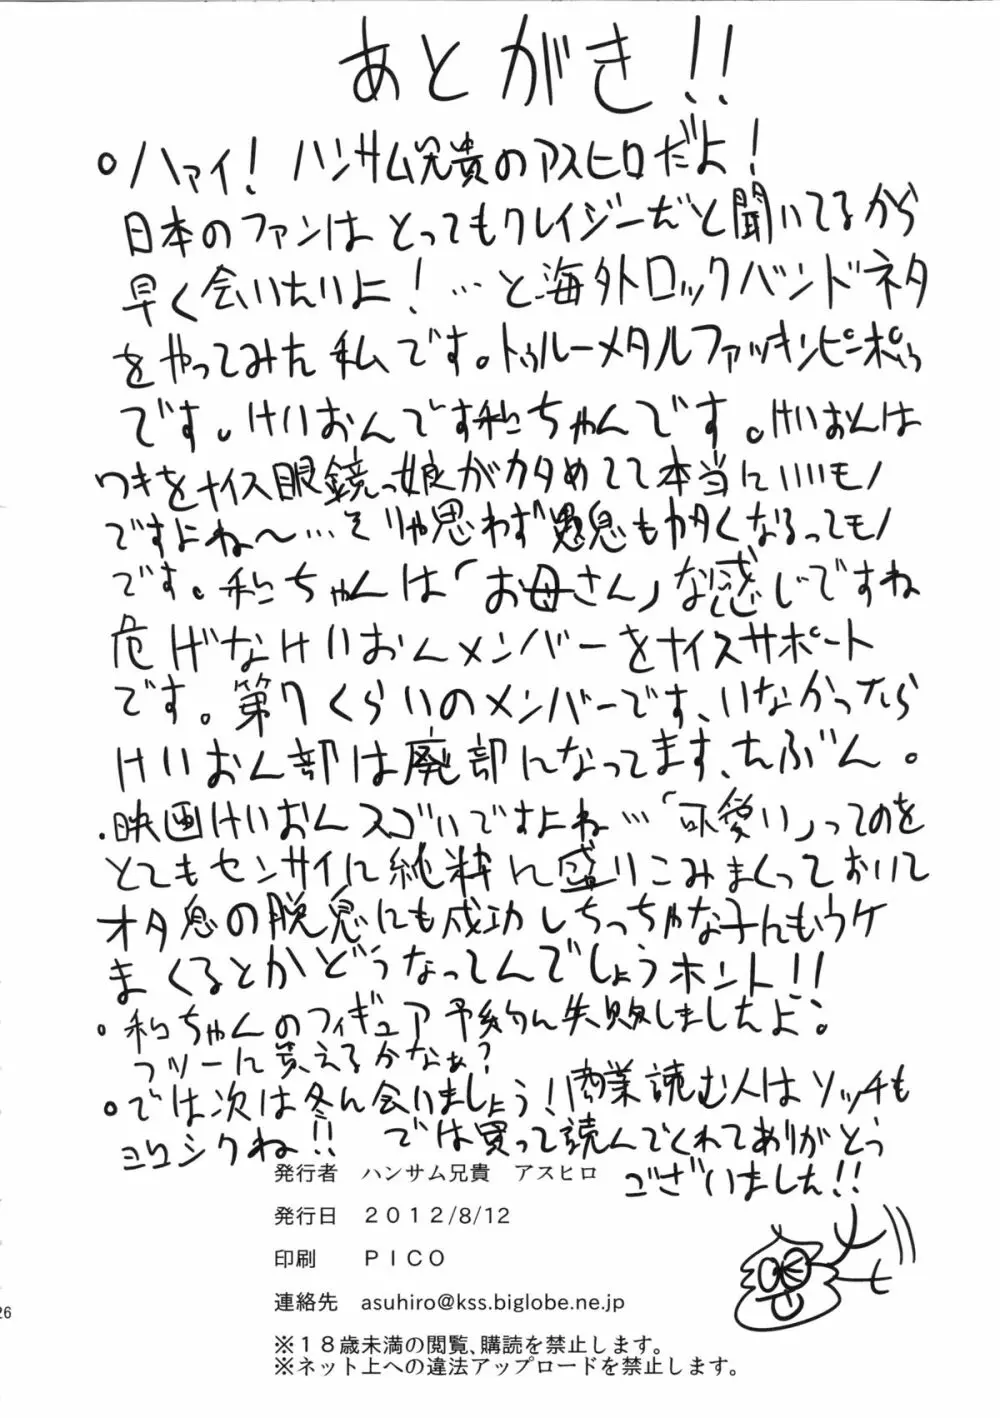 あとがき!!
○ハァイ!ハンサム兄貴のアスヒロだよ!
日本のファンはとってもクレイジーだと聞いてるから
早く会いたいよ!…と海外ロックバンドネタ
をやってみた私です。トゥルーメタルファッキンピンポゥ
です。けいおんです和ちゃんです。けいおんは
ワキをナイス眼鏡っ娘がカタめてて本当にいいモノ
ですよね〜…そりゃ思わず愚息もカタくなるってモノ
です。和ちゃんは「お母さん」な感じですね
危げなけいおんメンバーをナイスサポート
です。第7くらいのメンバーです、いなかったら
けいおん部は廃部になってます、たぶん。
・映画けいおんスゴいですよね…「可愛い」ってのを
とてもセンサイに純粋に盛りこみまくっておいて
オタ息の脱息にも成功しちっちゃな子にもウケ
まくるとかどうなってんでしょうホント!!
○和ちゃんのフィギュア予約に失敗しましたよ。
フツーに貰えるかなぁ?
○では次は冬に会いましょう!商業読む人はソッチも
ヨロシクね!! では買って読んでくれてありがとう
ございました!!
発行者 ハンサム兄貴 アスヒロ
発行日 2012/8/12
印刷 PICO
連絡先 asuhiro@kss.biglobe.ne.jp
※18歳未満の閲覧、購読を禁止します。
※ネット上への違法アップロードを禁止します。
26